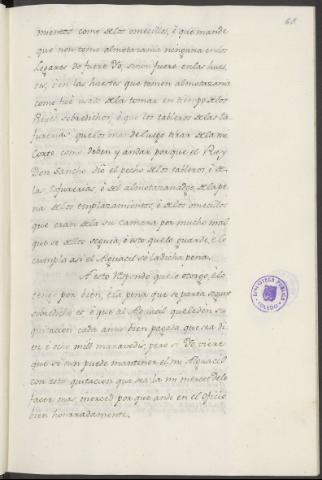 68.
muertos como de los omecillos, è que mande
que non tome almotazania ninguna en los
logares do fuere Yo, sinon fuere en las hues-
tes, è en las huestes que tomen almotazania
como fuè usado de la tomar en tiempo de los
Reyes sobredichos, è que los tableros de las ta-
furerias que los mande luego tirar de la mi
Corte como deben, y andar porque el Rey
Don Sancho diò el pecho de los tableros, è de
las tafurerias, è del almotazanadgo, è de la pe-
na de los emplazamientos, è de los omecillos
que eran de la su camara por mucho mal
que se dellos seguia, è esto que lo guarde, è lo
cumpla asi el Alguacil so la dicha pena.
A esto respondo que lo otorgo, è lo
tengo por bien, è la pena que se parta segun
sobredicho es è que al Alguacil que le den su
quitacion cada año bien pagada que sea di-
ez è ocho mill maravedis, pero si Yo viere
que se non puede mantener el mi Alguacil
con esta quitacion que sea la mi merced de le
facer mas merced por que ande en el Oficio
bien honrradamente.
BIBLIOTECA PUBLICA
TOLEDO